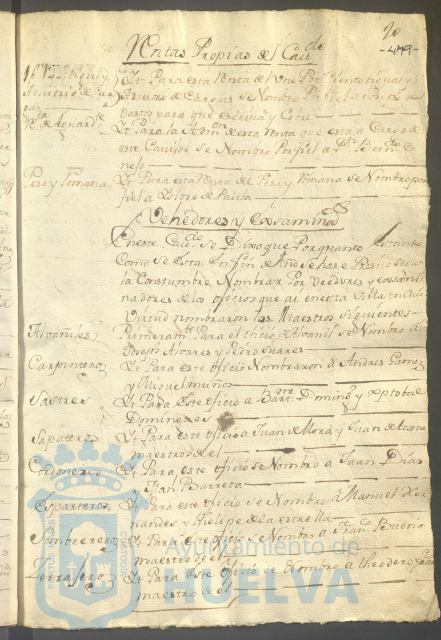 20
-479-
Rentas Propias del Cau.do
Yt. Para esta Renta del Uno Por
se Nombro Por fiel a
bastos para que escriua y Cobre
Rta. de Aguard.te Yt. Para la Adm.on de esta Renta que esta a Cargo de
este Cauildo se Nombro Por fiel a
Peso y Romana, Yt. Para esta Renta de Peso y Romana se Nombro por
fiel a
Vehedores y Exsamin.es
En este Cau.do se Dixo que Por quanto
Como se esta en fin de Año se hase Preciso segun
la Constumbre Nombrar Por Veedores y exsami
nadores de los ofizios que ai en esta Villa en Cuia
Virtud nombraron los Maestros siguientes
Alvañiles Primeram.te Para el ofizio de Alvañil se Nombro a
Diego Alvares y Pedro Suares
Carpinteros Yt. Para este ofizio Nombraron a Andres Gomez
y Miguel muños
Sastres Yt. Para Este ofizio a Bar.me Doming.z y xptobal
Domingues
Sapateros Yt. Para este ofizio a Juan de Mora y Juan de
maestros del
Cordoneros Yt. Para este ofizio se Nombro a Juan Dias
Juan Barreta
Esparteros Yt. Para este ofizio se Nombro a Manuel Her
nandes y Phelipe de la estrella
Sombrereros Yt. Para este ofizio se Nombro a Fran.co Bueno
maestro de el
Zerrajero Yt. Para Este ofizio se Nombro a theodoro
maestro de el
Ayuntamiento de
HUELVA